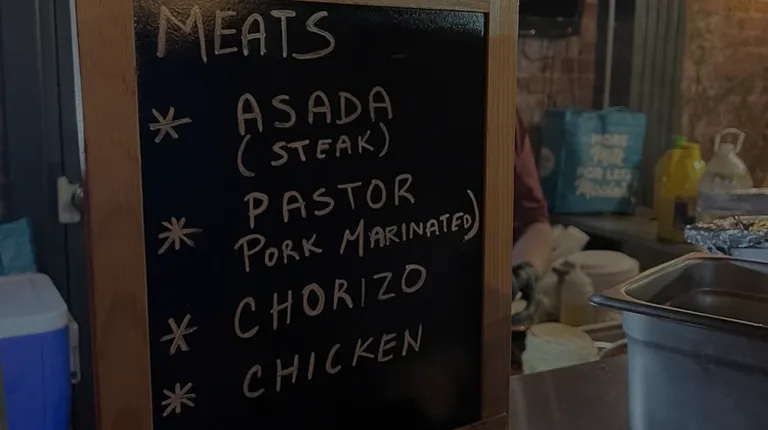 MEATS
* ASADA
(STEAK)
* PASTOR
PORK MARINATED)
* CHORIZO
* CHICKEN
MORE
FOR LESS